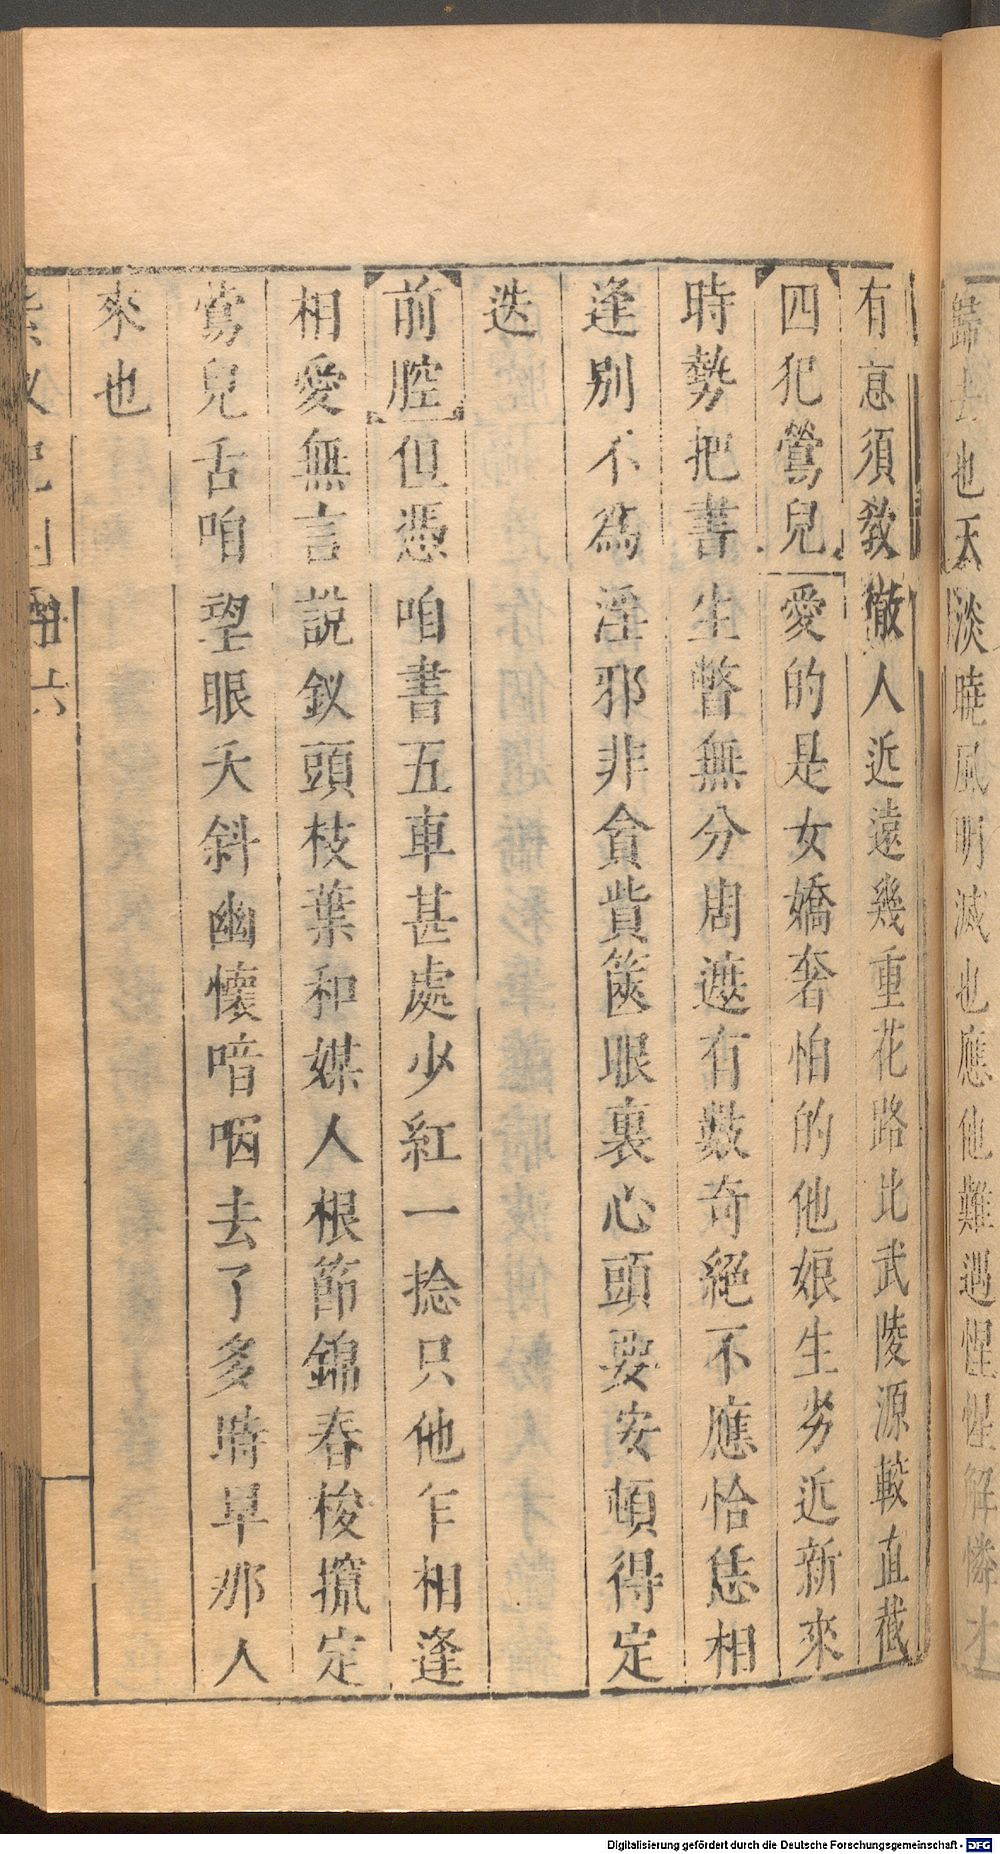 歸去也天淡曉風明滅也應他難遇惺惺解憐才
有意須敎徹人近遠幾重花路比武陵源較直截
四犯鶯兒愛的是女嬌奢怕的他娘生劣近新來
時勢把書生瞥無分周遮有數奇絕不應恰恁相
逢別不爲淫邪非貪貲篋眼裏心頭要安頓得定
迭
前腔但憑咱書五車甚處少紅一捻只他乍相逢
相愛無言說釵頭枝葉和媒人根節錦春梭攛定
鶯兒舌咱望眼天斜幽懷喑咽去了多時早那人
來也
六
Digitalisierung gefördert durch die Deutsche Forschungsgemeinschaft - DFG